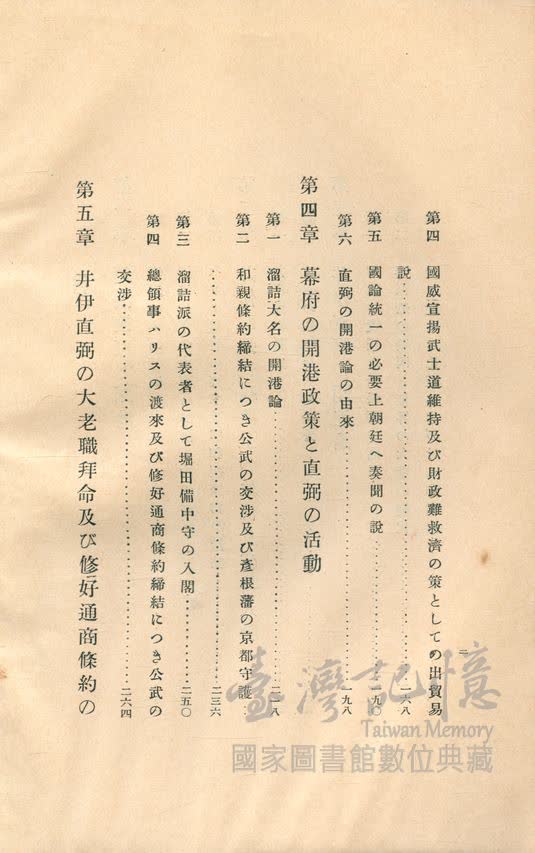 二
第四 國威宣揚武士道維持及び財政難救濟の策としての出貿易
說……………………一六八
第五 國論統一の必要上朝廷へ奏聞の說……………………一九〇
第六 直弼の開港論の由來……………………一九八
第四章 幕府の開港政策と直弼の活動
第一 溜詰大名の開港論……………………二一八
第二 和親條約締結につき公武の交涉及び彥根藩の京都守護…
……………………二三六
第三 溜詰派の代表者として堀田備中守の入閣……………………二五〇
第四 總領事ハリスの渡來及び修好通商條約締結につき公武の
交涉……………………二六四
第五章 井伊直弼の大老職拜命及び修好通商條約の
臺灣記憶
Taiwan Memory
國家圖書館數位典藏